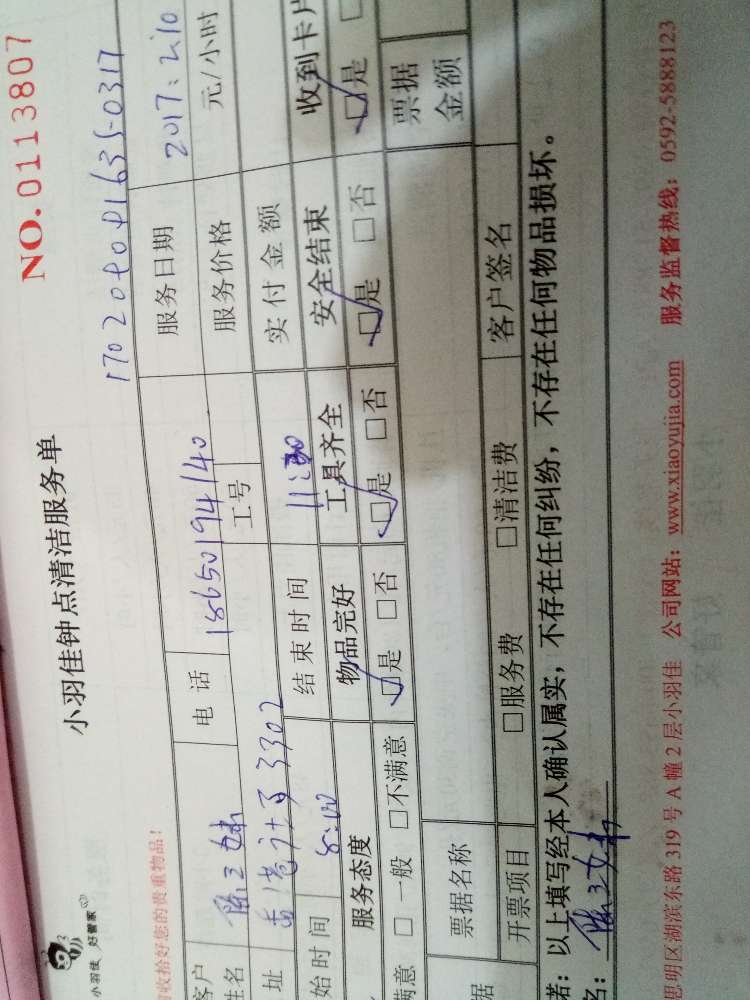 小羽佳 好管家
小羽佳钟点清洁服务单
NO. 0113807
收拾好您的贵重物品!
客户 电 话 18650194140 服务日期 2017.2.10
姓名 工号 服务价格 元/小时
址 3302
始时间 8:00 结束时间 11:00 实付金额
服务态度 物品完好 工具齐全 安全结束 收到卡片
满意 □ 一般 □不满意 □是 □否 □是 □否 □是 □否 □是 □
据 票据名称 票据
金额
开票项目 □服务费 □清洁费 客户签名
诺:以上填写经本人确认属实,不存在任何纠纷,不存在任何物品损坏。
名:
思明区湖滨东路 319 号 A 幢 2 层小羽佳 公司网站:www.xiaoyujia.com 服务监督热线:0592-5888123